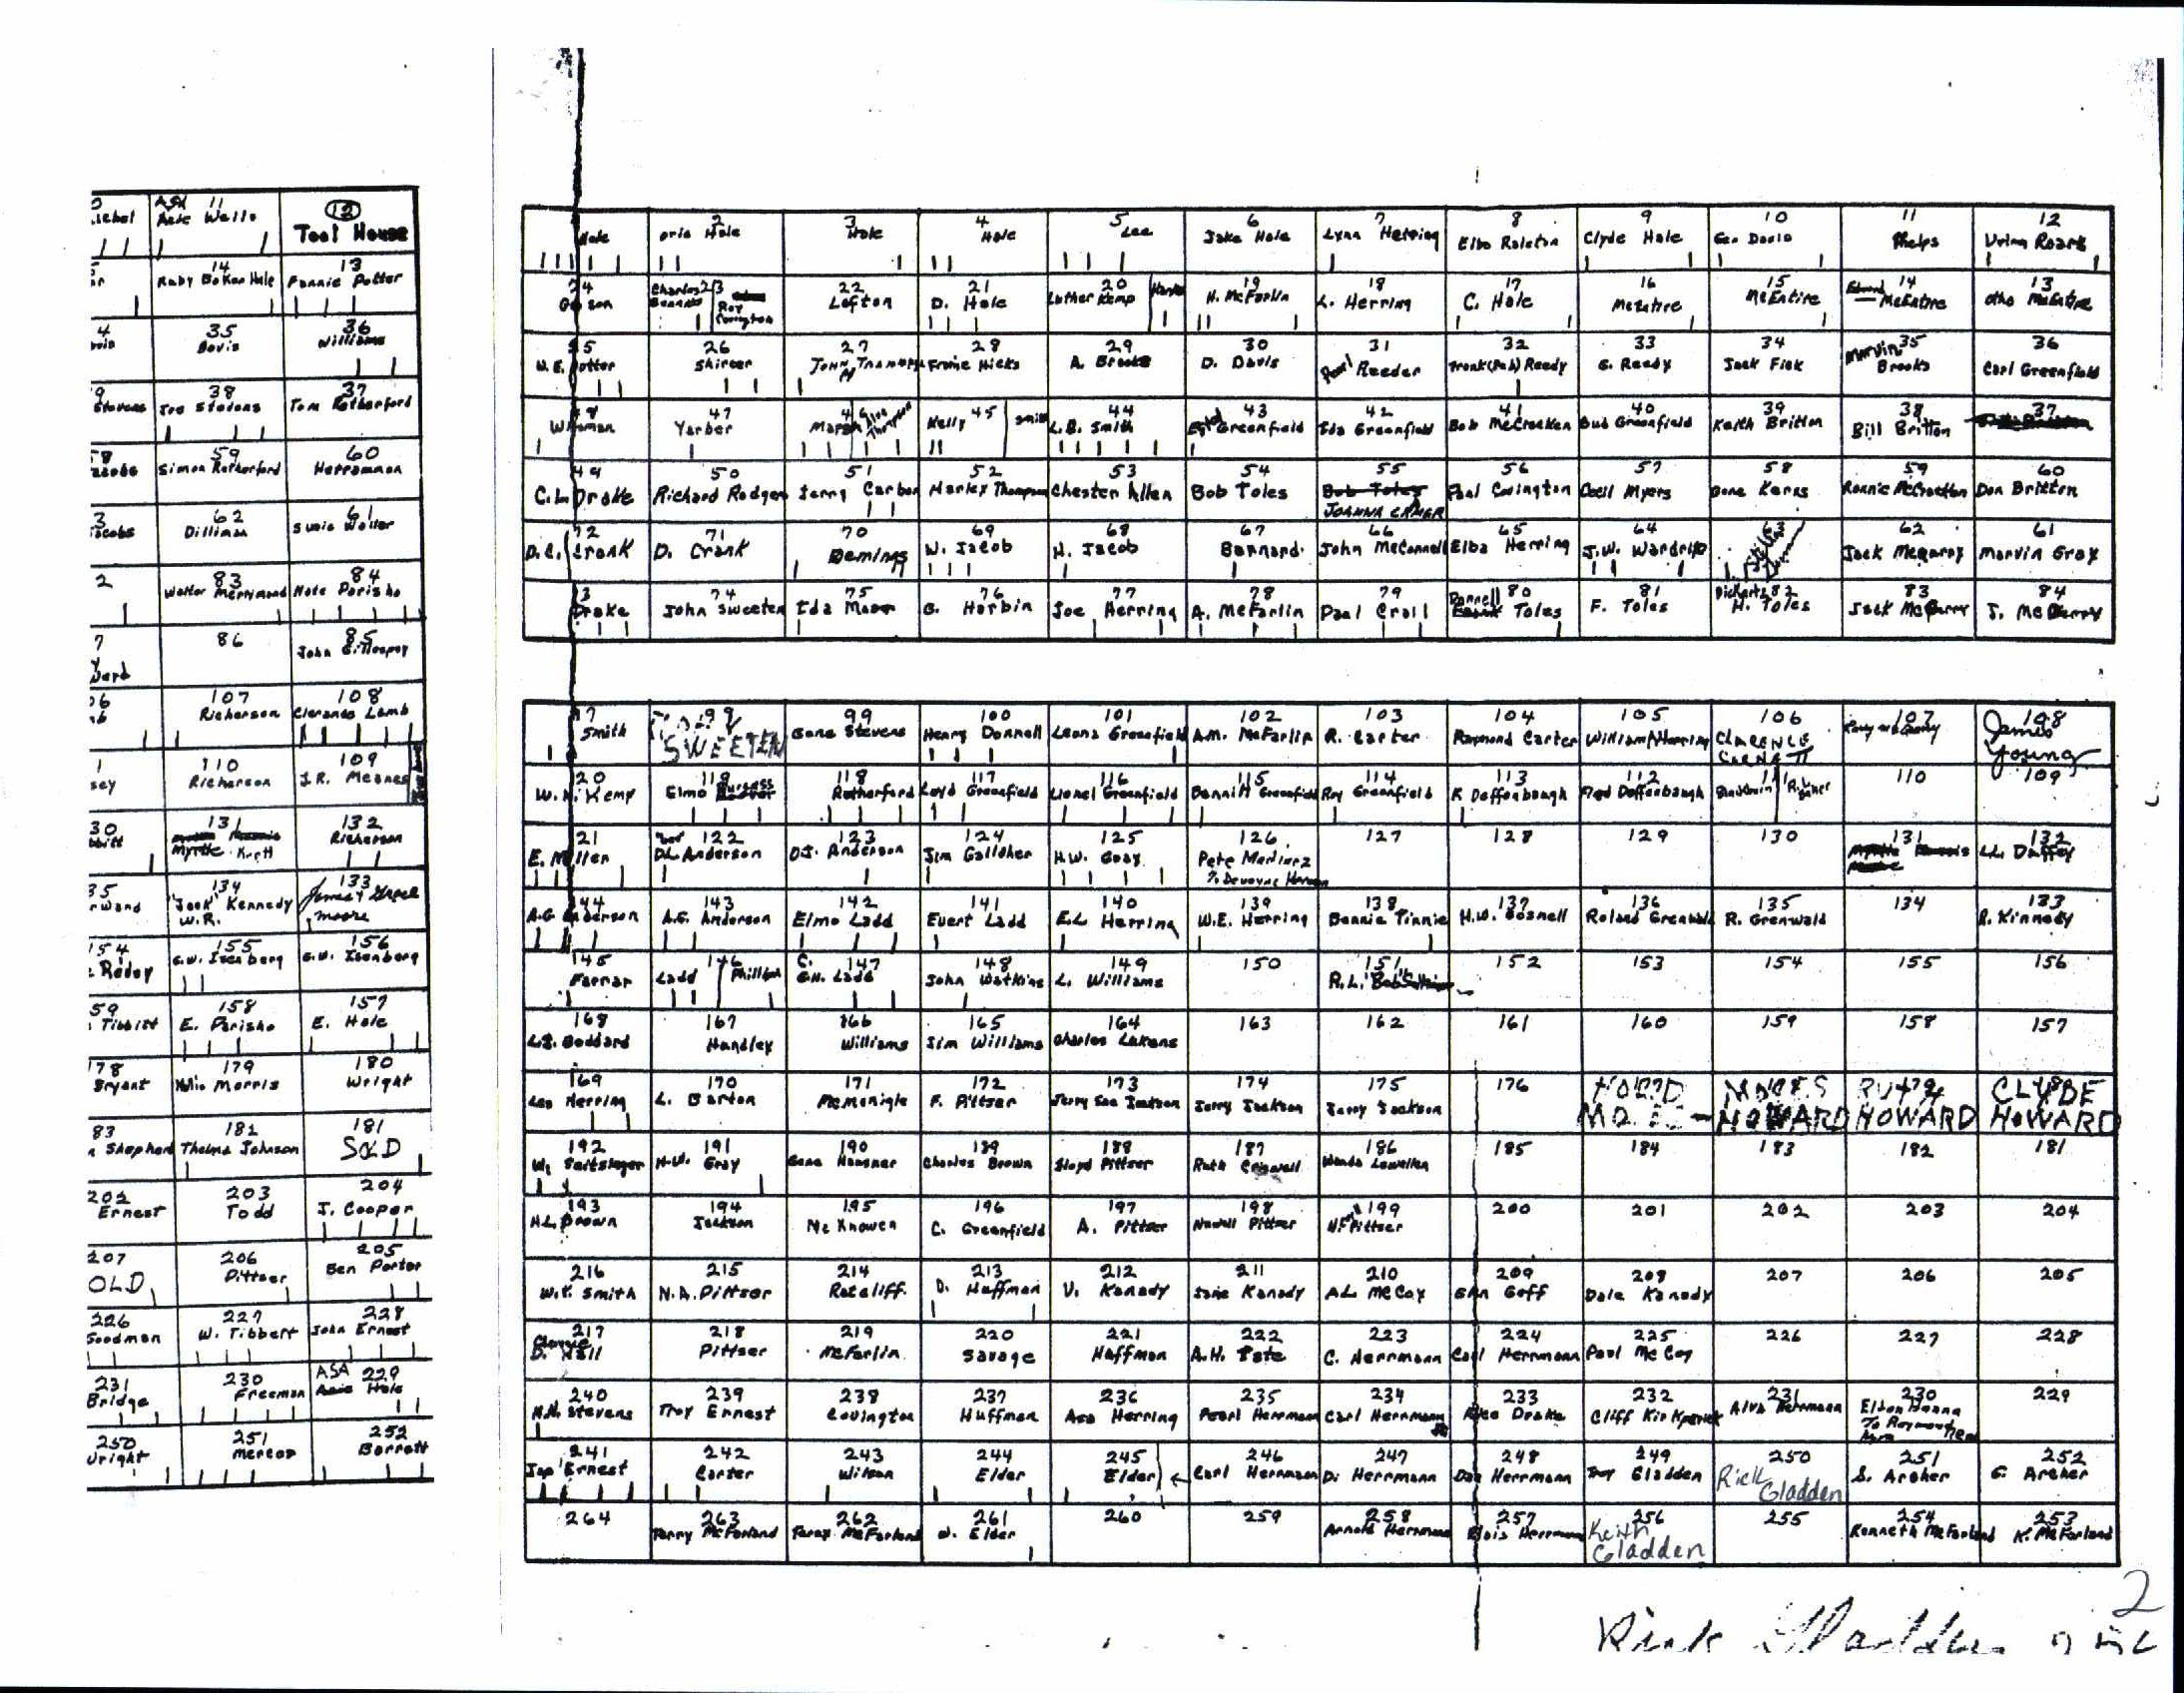 11
ASA
Acie Wells
12
Tool House
14
Ruby Baker Hale
13
Fannie Potter
35
Davis
36
Williams
9
Stevens
38
Joe Stevens
37
Tom Rutherford
59
Simon Rutherford
60
Herrammon
62
Dilliman
61
Susie Waller
2
83
Walter Merrimond
84
Nate Parisho
7
86
85
John Gillespey
107
Richerson
108
Clarance Lamb
110
Richerson
109
J.R. Meanes
30
131
Myrtle Knott
132
Richerson
134
"Jack" Kennedy
W.R.
133
James & Grace
Moore
154
155
G.W. Isenberg
156
G.W. Isenberg
59
Tibbitt
158
E. Parisho
157
E. Hale
178
Bryant
179
Morris
180
Wright
83
Shepherd
182
Thelma Johnson
181
SOLD
202
Ernest
203
Todd
204
J. Cooper
207
OLD
206
Pittser
205
Ben Porter
226
Goodman
227
W. Tibbett
228
John Ernest
231
Bridge
230
Freeman
ASA 229
Hale
250
Wright
251
Mercer
252
Barrett
Hale
2
Orla Hale
3
Hale
4
Hale
5
Lee
6
Jake Hale
7
Lynn Herring
8
Elba Ralston
9
Clyde Hale
10
Geo Davis
11
Phelps
12
Urina Roark
24
23
Charles
Roy
Covington
22
Lofton
21
D. Hale
20
Luther Kemp
19
H. McFarlin
18
L. Herring
17
C. Hale
16
McEntire
15
McEntire
14
Edward McEntire
13
Otho McEntire
25
W.E. Potter
26
Shireer
27
John
28
Ernie Hicks
29
A. Brooks
30
D. Davis
31
Pearl Reeder
32
Frank (Pub) Reedy
33
G. Reedy
34
Jack Fick
Marvin 35
Brooks
36
Carl Greenfield
48
47
Yarber
46
Marsh
Kelly 45
Smith
44
L.B. Smith
43
Greenfield
42
Ida Greenfield
41
Bob McCracken
40
Bud Greenfield
39
Keith Britton
38
Bill Britton
37
49
C.L. Drake
50
Richard Rodgers
51
Jerry Carbon
52
Harley Thompson
53
Chester Allen
54
Bob Toles
55
Bob Toles
JOANNA
56
Paul Covington
57
Cecil Myers
58
Gene Karns
59
Ronnie McCracken
60
Don Britton
72
D.C. Crank
71
D. Crank
70
Deming
69
W. Jacob
68
H. Jacob
67
Barnard
66
John McConnell
65
Elba Herring
64
J.W. Wardrip
63
62
Jack McGarry
61
Marvin Gray
Drake
74
John Sweeten
75
Ida
76
G. Harbin
77
Joe Herring
78
A. McFarlin
79
Paul Croll
80
Donnell
Toles
81
F. Toles
82
H. Toles
83
Jack McGarry
84
J. McGarry
Smith
SWEETEN
99
Gene Stevens
100
Henry Donnell
101
Leona Greenfield
102
A.M. McFarlin
103
R. Carter
104
Raymond Carter
105
William Herring
106
CLARENCE
107
108
James
Young
W. Kemp
119
Elmo
118
Rutherford
117
Loyd Greenfield
116
Lionel Greenfield
115
Greenfield
114
Roy Greenfield
113
K Deffenbaugh
112
Fred Deffenbaugh
111
110
109
E. Miller
122
D.L. Anderson
123
D.J. Anderson
124
Jim Gallaher
125
H.W. Gray
126
Pete Martinez
127
128
129
130
131
132
L.L. Duffey
144
A.G. Anderson
143
A.G. Anderson
142
Elmo Ladd
141
Evert Ladd
140
E.L. Herring
139
W.E. Herring
138
Bennie Pinnie
137
H.W. Gosnell
136
Roland Grenwald
135
R. Grenwald
134
133
R. Kinnedy
145
Farrar
146
Ladd
C. 147
G.H. Ladd
148
John Watkins
149
L. Williams
150
151
R.L. "Bob"
152
153
154
155
156
168
L.S. Goddard
167
Handley
166
Williams
165
Jim Williams
164
Charles Lukens
163
162
161
160
159
158
157
169
Leo Herring
170
L. Barton
171
McMonigle
172
F. Pittser
173
Jerry Sue Jackson
174
Jerry Jackson
175
Jerry Jackson
176
HOWARD
RUTH
HOWARD
CLYDE
HOWARD
192
191
H.W. Gray
190
Gene Hausner
189
Charles Brown
188
Lloyd Pittser
187
Ruth Criswell
186
Wanda Lewellen
185
184
183
182
181
193
H.L. Brown
194
Jackson
195
McKnowen
196
C. Greenfield
197
A. Pittser
198
Newell Pittser
199
Pittser
200
201
202
203
204
216
W.T. Smith
215
N.A. Pittser
214
Ratcliff
213
D. Huffman
212
V. Kanady
211
Kanady
210
AL McCoy
209
Goff
208
Dale Kanady
207
206
205
217
D. Hall
218
Pittser
219
McFarlin
220
Savage
221
Huffman
222
A.H. Tate
223
C. Herrmann
224
Carl Herrmann
225
Paul McCoy
226
227
228
240
H.N. Stevens
239
Troy Ernest
238
Covington
237
Huffman
236
Asa Herring
235
Pearl Herrmann
234
Carl Herrmann
Jr
233
Drake
232
Cliff Kirkpatrick
231
Alva Herrmann
230
Elton Hanna
To Raymond
229
241
Jap Ernest
242
Carter
243
Wilson
244
Elder
245
Elder
246
Carl Herrmann
247
D. Herrmann
248
Herrmann
249
Troy Gladden
250
Rick
Gladden
251
S. Archer
252
G. Archer
264
263
Terry McFarland
262
McFarland
261
W. Elder
260
259
258
Arnold Herrmann
257
Elois Herrmann
256
Keith
Gladden
255
254
Kenneth McFarland
253
K. McFarland
2
Rick Gladden